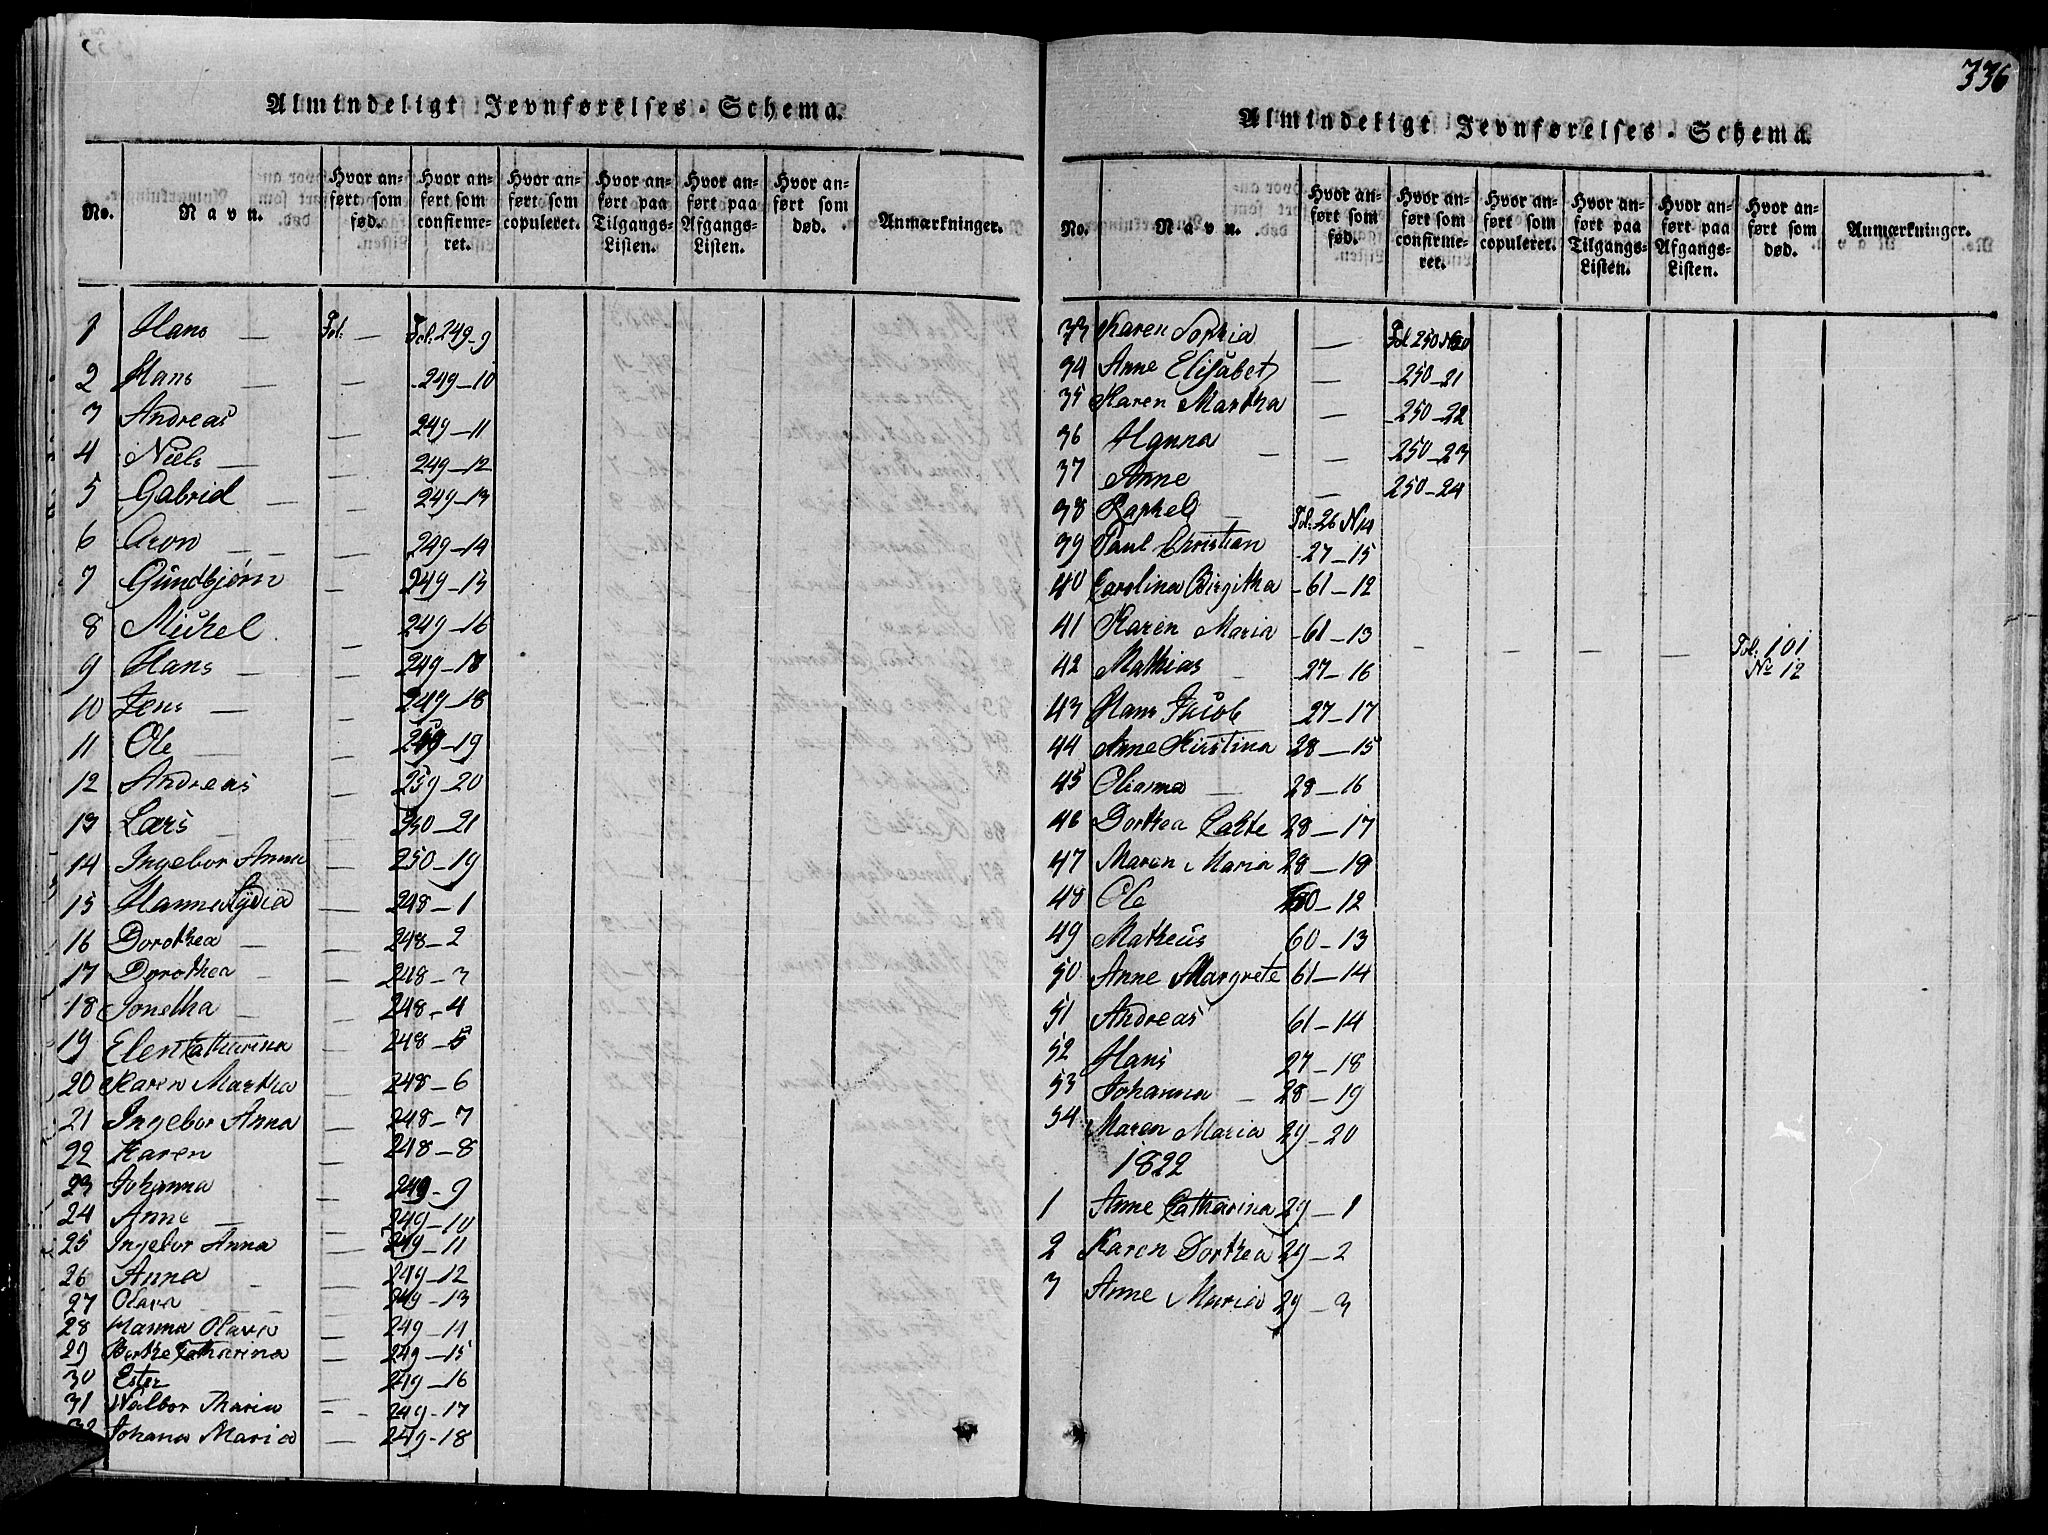 Almindeligt Jevnførelses-Schema.
No. Navn. Hvor anført som fød. Hvor anført som confirmeret. Hvor anført som copuleret. Hvor anført paa Tilgangs-Listen. Hvor anført paa Afgangs-Listen. Hvor anført som død. Anmærkninger.
1 Hans — Fol. — Fol. 249-9
2 Hans — — 249-10
3 Andreas — 249-11
4 Niels — — 249-12
5 Gabriel — — 249-13
6 Aron — — 249-14
7 Gundbjørn — 249-15
8 Michel — 249-16
9 Hans — — 249-17
10 Jens — — 249-18
11 Ole — — 249-19
12 Andreas — 259-20
13 Lars — — 250-21
14 Ingebor Anna — 250-19
15 Hanna Lydia — 248-1
16 Dorothea — — 248-2
17 Dorothea — — 248-3
18 Jonetha — — 248-4
19 Elen Catharina — 248-5
20 Karen Martha — 248-6
21 Ingebor Anna — 248-7
22 Karen — 248-8
23 Johanna — 249-9
24 Anne — — 249-10
25 Ingebor Anna — 249-11
26 Anna — — 249-12
27 Olava — — 249-13
28 Hanna Olava — 249-14
29 Berthe Catharina — 249-15
30 Ester — 249-16
31 Walbor Maria — 249-17
32 Johana Maria — 249-18
336
Almindeligt Jevnførelses-Schema.
No. Navn. Hvor anført som fød. Hvor anført som confirmeret. Hvor anført som copuleret. Hvor anført paa Tilgangs-Listen. Hvor anført paa Afgangs-Listen. Hvor anført som død. Anmærkninger.
33 Karen Sophia — Fol 250 No 20
34 Anne Elisabet — 250-21
35 Karen Martha — 250-22
36 Hanna — — 250-23
37 Anne — 250-24
38 Raphel — Fol. 26 N 14
39 Paul Christian 27-15
40 Carolina Birgitha 61-12
41 Karen Maria 61-13
42 Mathias — 27-16 — — — — Fol. 101 No 12
43 Hans Jacob 27-17
44 Anne Kirstina 28-15
45 Oliana — 28-16
46 Dorthea 28-17
47 Maren Maria 28-18
48 Ole 60-12
49 Matheus 60-13
50 Anne Margrete 61-14
51 Andreas 61-14
52 Hans 27-18
53 Johanna — 28-19
54 Maren Maria 29-20
1822
1 Anne Catharina 29-1
2 Karen Dorthea 29-2
3 Anne Maria 29-3